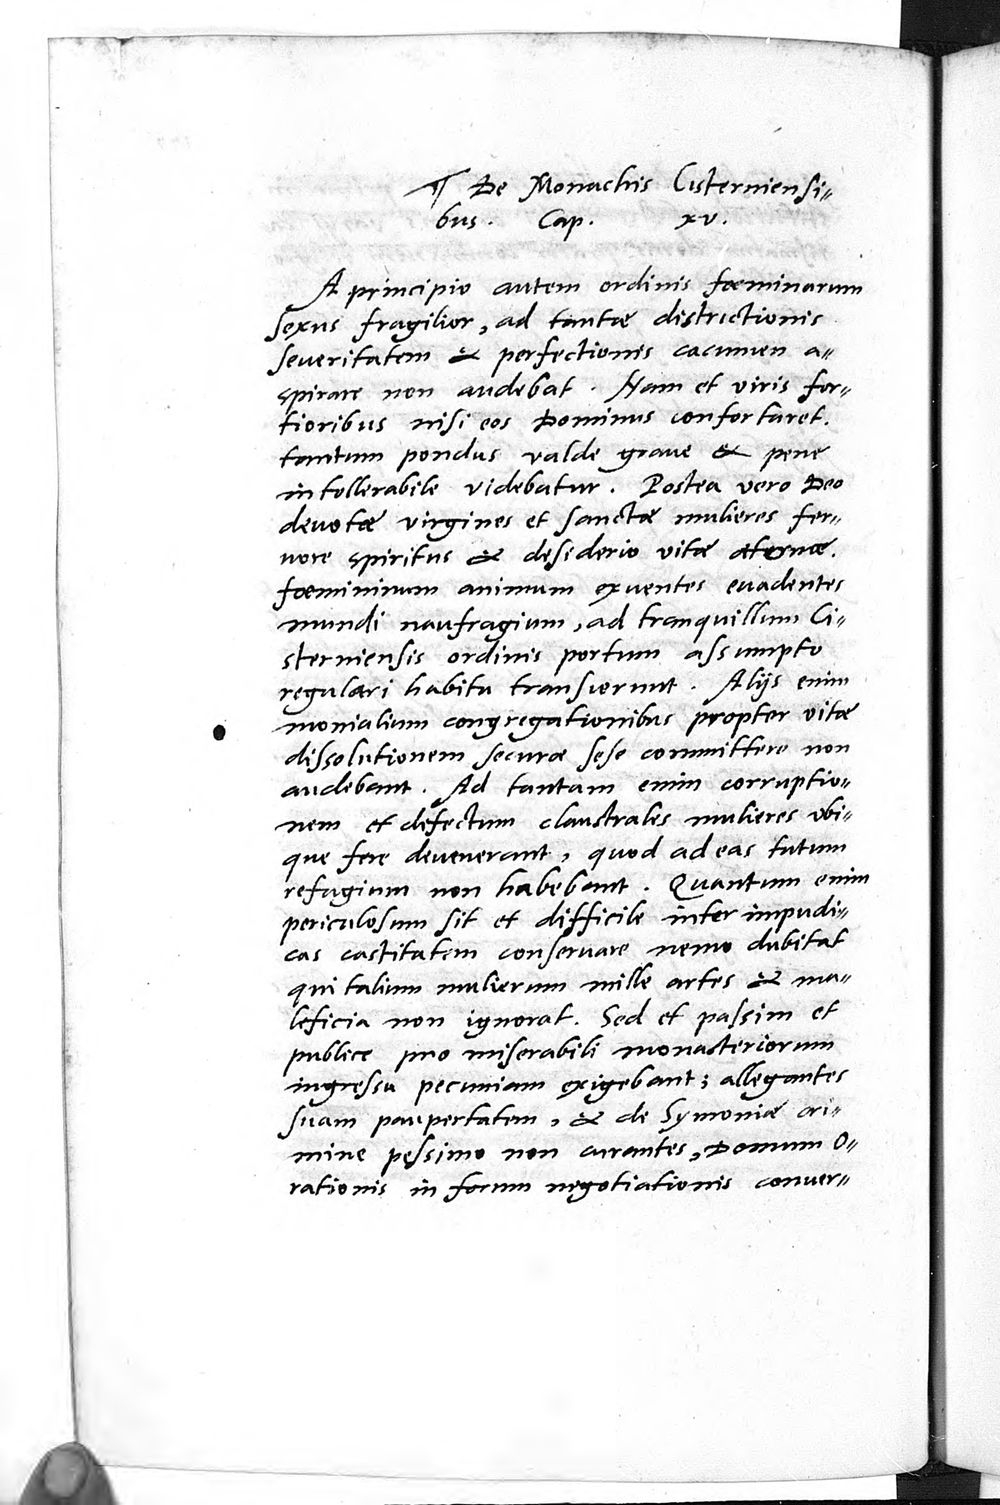 ¶ De Monachis Cisterniensi=
bus. Cap. xv.
A principio autem ordinis fœminarum
sexus fragilior, ad tantæ districtionis
seueritatem & perfectionis cacumen a=
spirare non audebat. Nam et viris for=
tioribus nisi eos Dominus confortaret.
tantum pondus valde graue & pene
intollerabile videbatur. Postea vero Deo
deuotæ virgines et sanctæ mulieres fer=
uore spiritus & desiderio vitæ æternæ.
fœmininum animum exuentes euadentes
mundi naufragium, ad tranquillum Ci=
sterniensis ordinis portum assumpto
regulari habitu transierunt. Alijs enim
monialium congregationibus propter vitæ
dissolutionem securæ sese committere non
audebant. Ad tantam enim corruptio=
nem et defectum claustrales mulieres vbi=
que fere deuenerant, quod ad eas tutum
refugium non habebant. Quantum enim
periculosum sit et difficile inter impudi=
cas castitatem conseruare nemo dubitat
qui talium mulierum mille artes & ma=
leficia non ignorat. Sed et passim et
publice pro miserabili monasteriorum
ingressu pecuniam exigebant; allegantes
suam paupertatem, & de Symoniæ cri=
mine pessimo non curantes, Domum O=
rationis in forum negotiationis conuer=